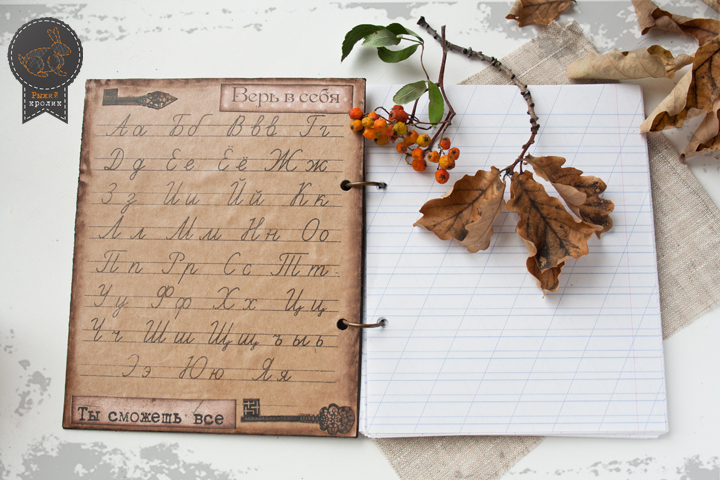 Рыжий
кролик
Верь в себя
Аа Бб Ввв Гг
Дд Ее Ёё Жж
Зз Ии Йй Кк
Лл Мм Нн Оо
Пп Рр Сс Тт
Уу Фф Хх Цц
Чч Шш Щщ ъ ы ь
Ээ Юю Яя
Ты сможешь все